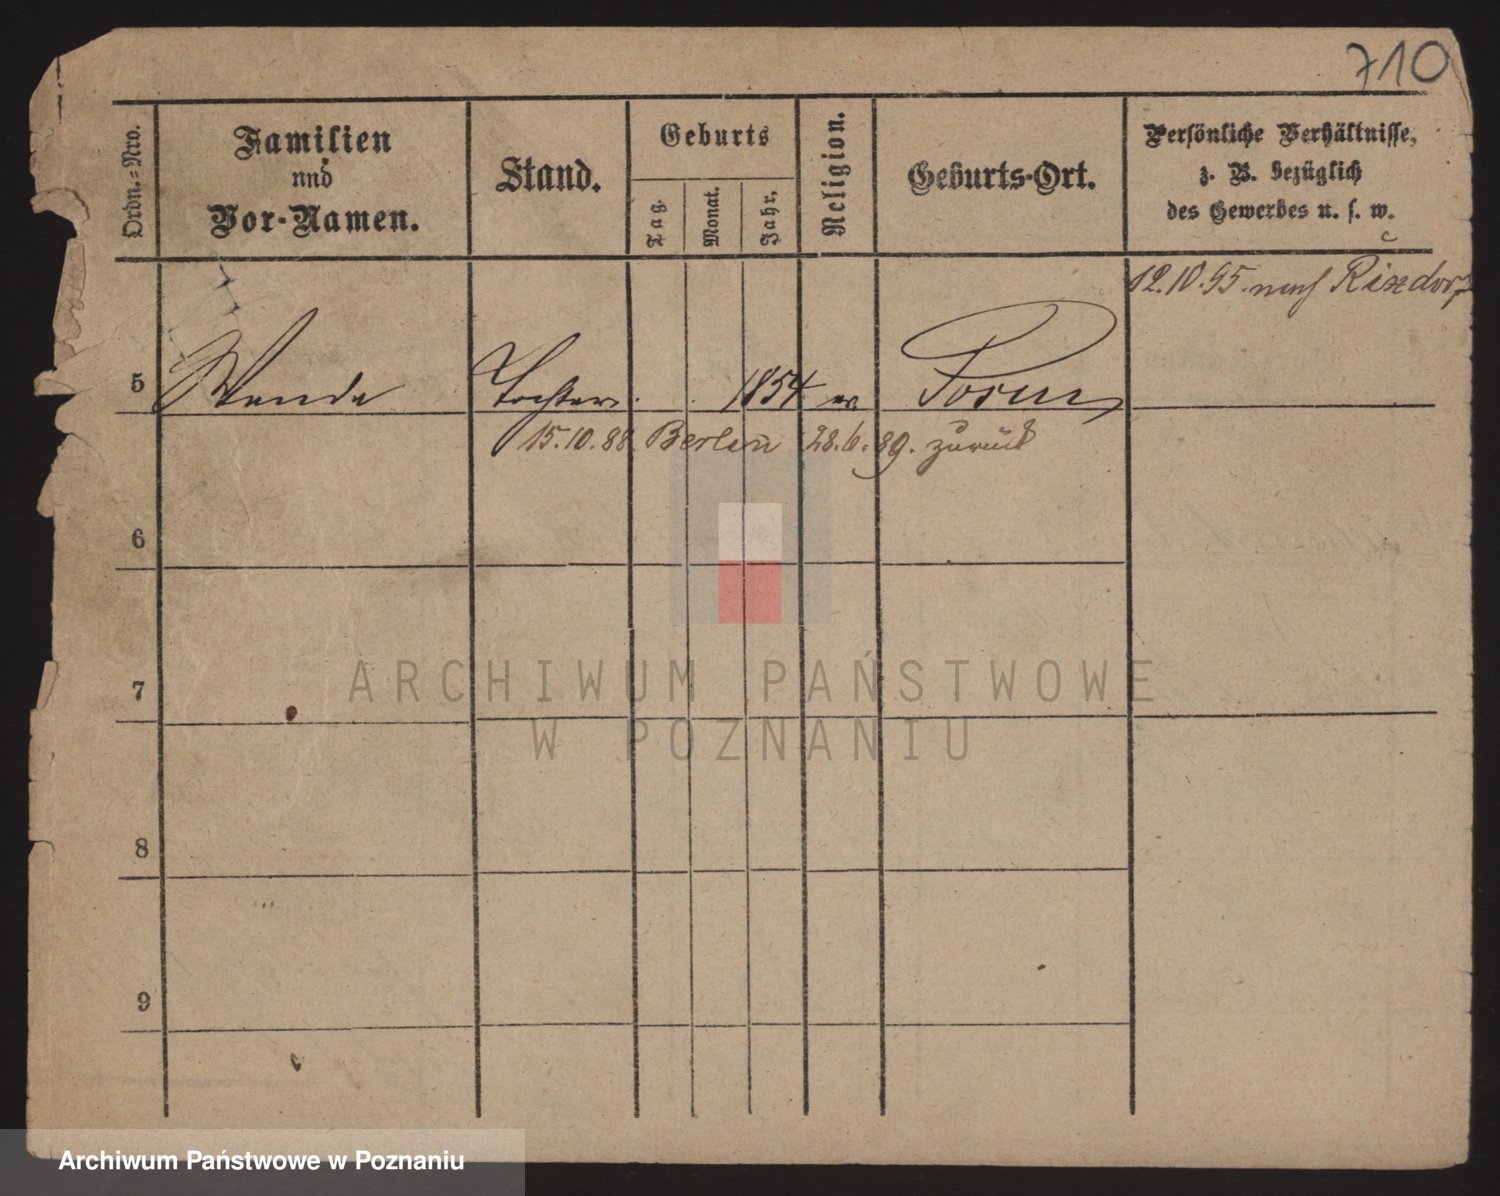 710
Ordn.-Nro.
Familien
und
Vor-Namen.
Stand.
Geburts
Tag.
Monat.
Jahr.
Religion.
Geburts-Ort.
Persönliche Verhältnisse,
z. B. bezüglich
des Gewerbes u. s. w.
12.10.95. nach Rixdorf
5 Wanda Tochter 1854 ev Posen
15.10.88. Berlin 28.6.89. zurück
6
7
8
9
ARCHIWUM PAŃSTWOWE
W POZNANIU
Archiwum Państwowe w Poznaniu